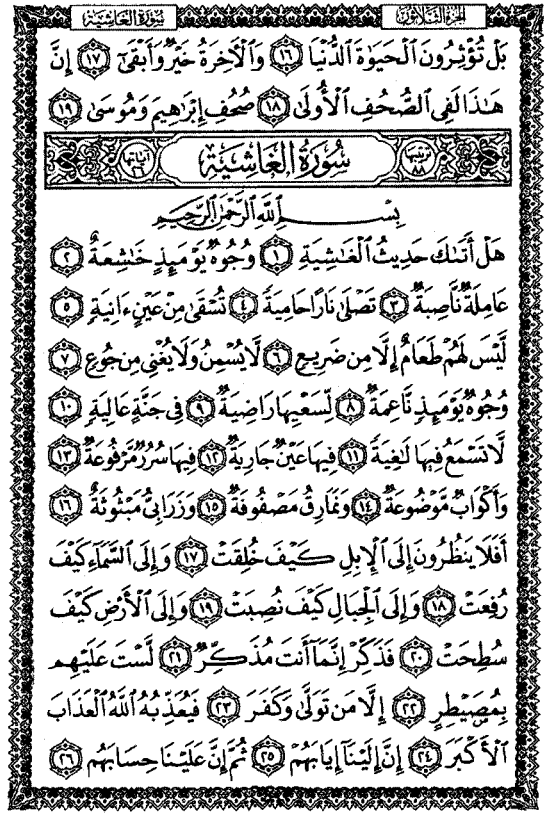 سُورَةُ الغَاشِيَةِ الجزءُ الثَّلَاثُونَ
بَلۡ تُؤۡثِرُونَ ٱلۡحَيَوٰةَ ٱلدُّنۡيَا ١٦ وَٱلۡأٓخِرَةُ خَيۡرٞ وَأَبۡقَىٰٓ ١٧ إِنَّ
هَٰذَا لَفِي ٱلصُّحُفِ ٱلۡأُولَىٰ ١٨ صُحُفِ إِبۡرَٰهِيمَ وَمُوسَىٰ ١٩
ترتيبها ٨٨ سُورَةُ الغَاشِيَةِ آياتها ٢٦
بِسۡمِ ٱللَّهِ ٱلرَّحۡمَٰنِ ٱلرَّحِيمِ
هَلۡ أَتَىٰكَ حَدِيثُ ٱلۡغَٰشِيَةِ ١ وُجُوهٞ يَوۡمَئِذٍ خَٰشِعَةٌ ٢
عَامِلَةٞ نَّاصِبَةٞ ٣ تَصۡلَىٰ نَارًا حَامِيَةٗ ٤ تُسۡقَىٰ مِنۡ عَيۡنٍ ءَانِيَةٖ ٥
لَّيۡسَ لَهُمۡ طَعَامٌ إِلَّا مِن ضَرِيعٖ ٦ لَّا يُسۡمِنُ وَلَا يُغۡنِي مِن جُوعٖ ٧
وُجُوهٞ يَوۡمَئِذٖ نَّاعِمَةٞ ٨ لِّسَعۡيِهَا رَاضِيَةٞ ٩ فِي جَنَّةٍ عَالِيَةٖ ١٠
لَّا تَسۡمَعُ فِيهَا لَٰغِيَةٗ ١١ فِيهَا عَيۡنٞ جَارِيَةٞ ١٢ فِيهَا سُرُرٞ مَّرۡفُوعَةٞ ١٣
وَأَكۡوَابٞ مَّوۡضُوعَةٞ ١٤ وَنَمَارِقُ مَصۡفُوفَةٞ ١٥ وَزَرَابِيُّ مَبۡثُوثَةٌ ١٦
أَفَلَا يَنظُرُونَ إِلَى ٱلۡإِبِلِ كَيۡفَ خُلِقَتۡ ١٧ وَإِلَى ٱلسَّمَآءِ كَيۡفَ
رُفِعَتۡ ١٨ وَإِلَى ٱلۡجِبَالِ كَيۡفَ نُصِبَتۡ ١٩ وَإِلَى ٱلۡأَرۡضِ كَيۡفَ
سُطِحَتۡ ٢٠ فَذَكِّرۡ إِنَّمَآ أَنتَ مُذَكِّرٞ ٢١ لَّسۡتَ عَلَيۡهِم
بِمُصَيۡطِرٍ ٢٢ إِلَّا مَن تَوَلَّىٰ وَكَفَرَ ٢٣ فَيُعَذِّبُهُ ٱللَّهُ ٱلۡعَذَابَ
ٱلۡأَكۡبَرَ ٢٤ إِنَّ إِلَيۡنَآ إِيَابَهُمۡ ٢٥ ثُمَّ إِنَّ عَلَيۡنَا حِسَابَهُم ٢٦